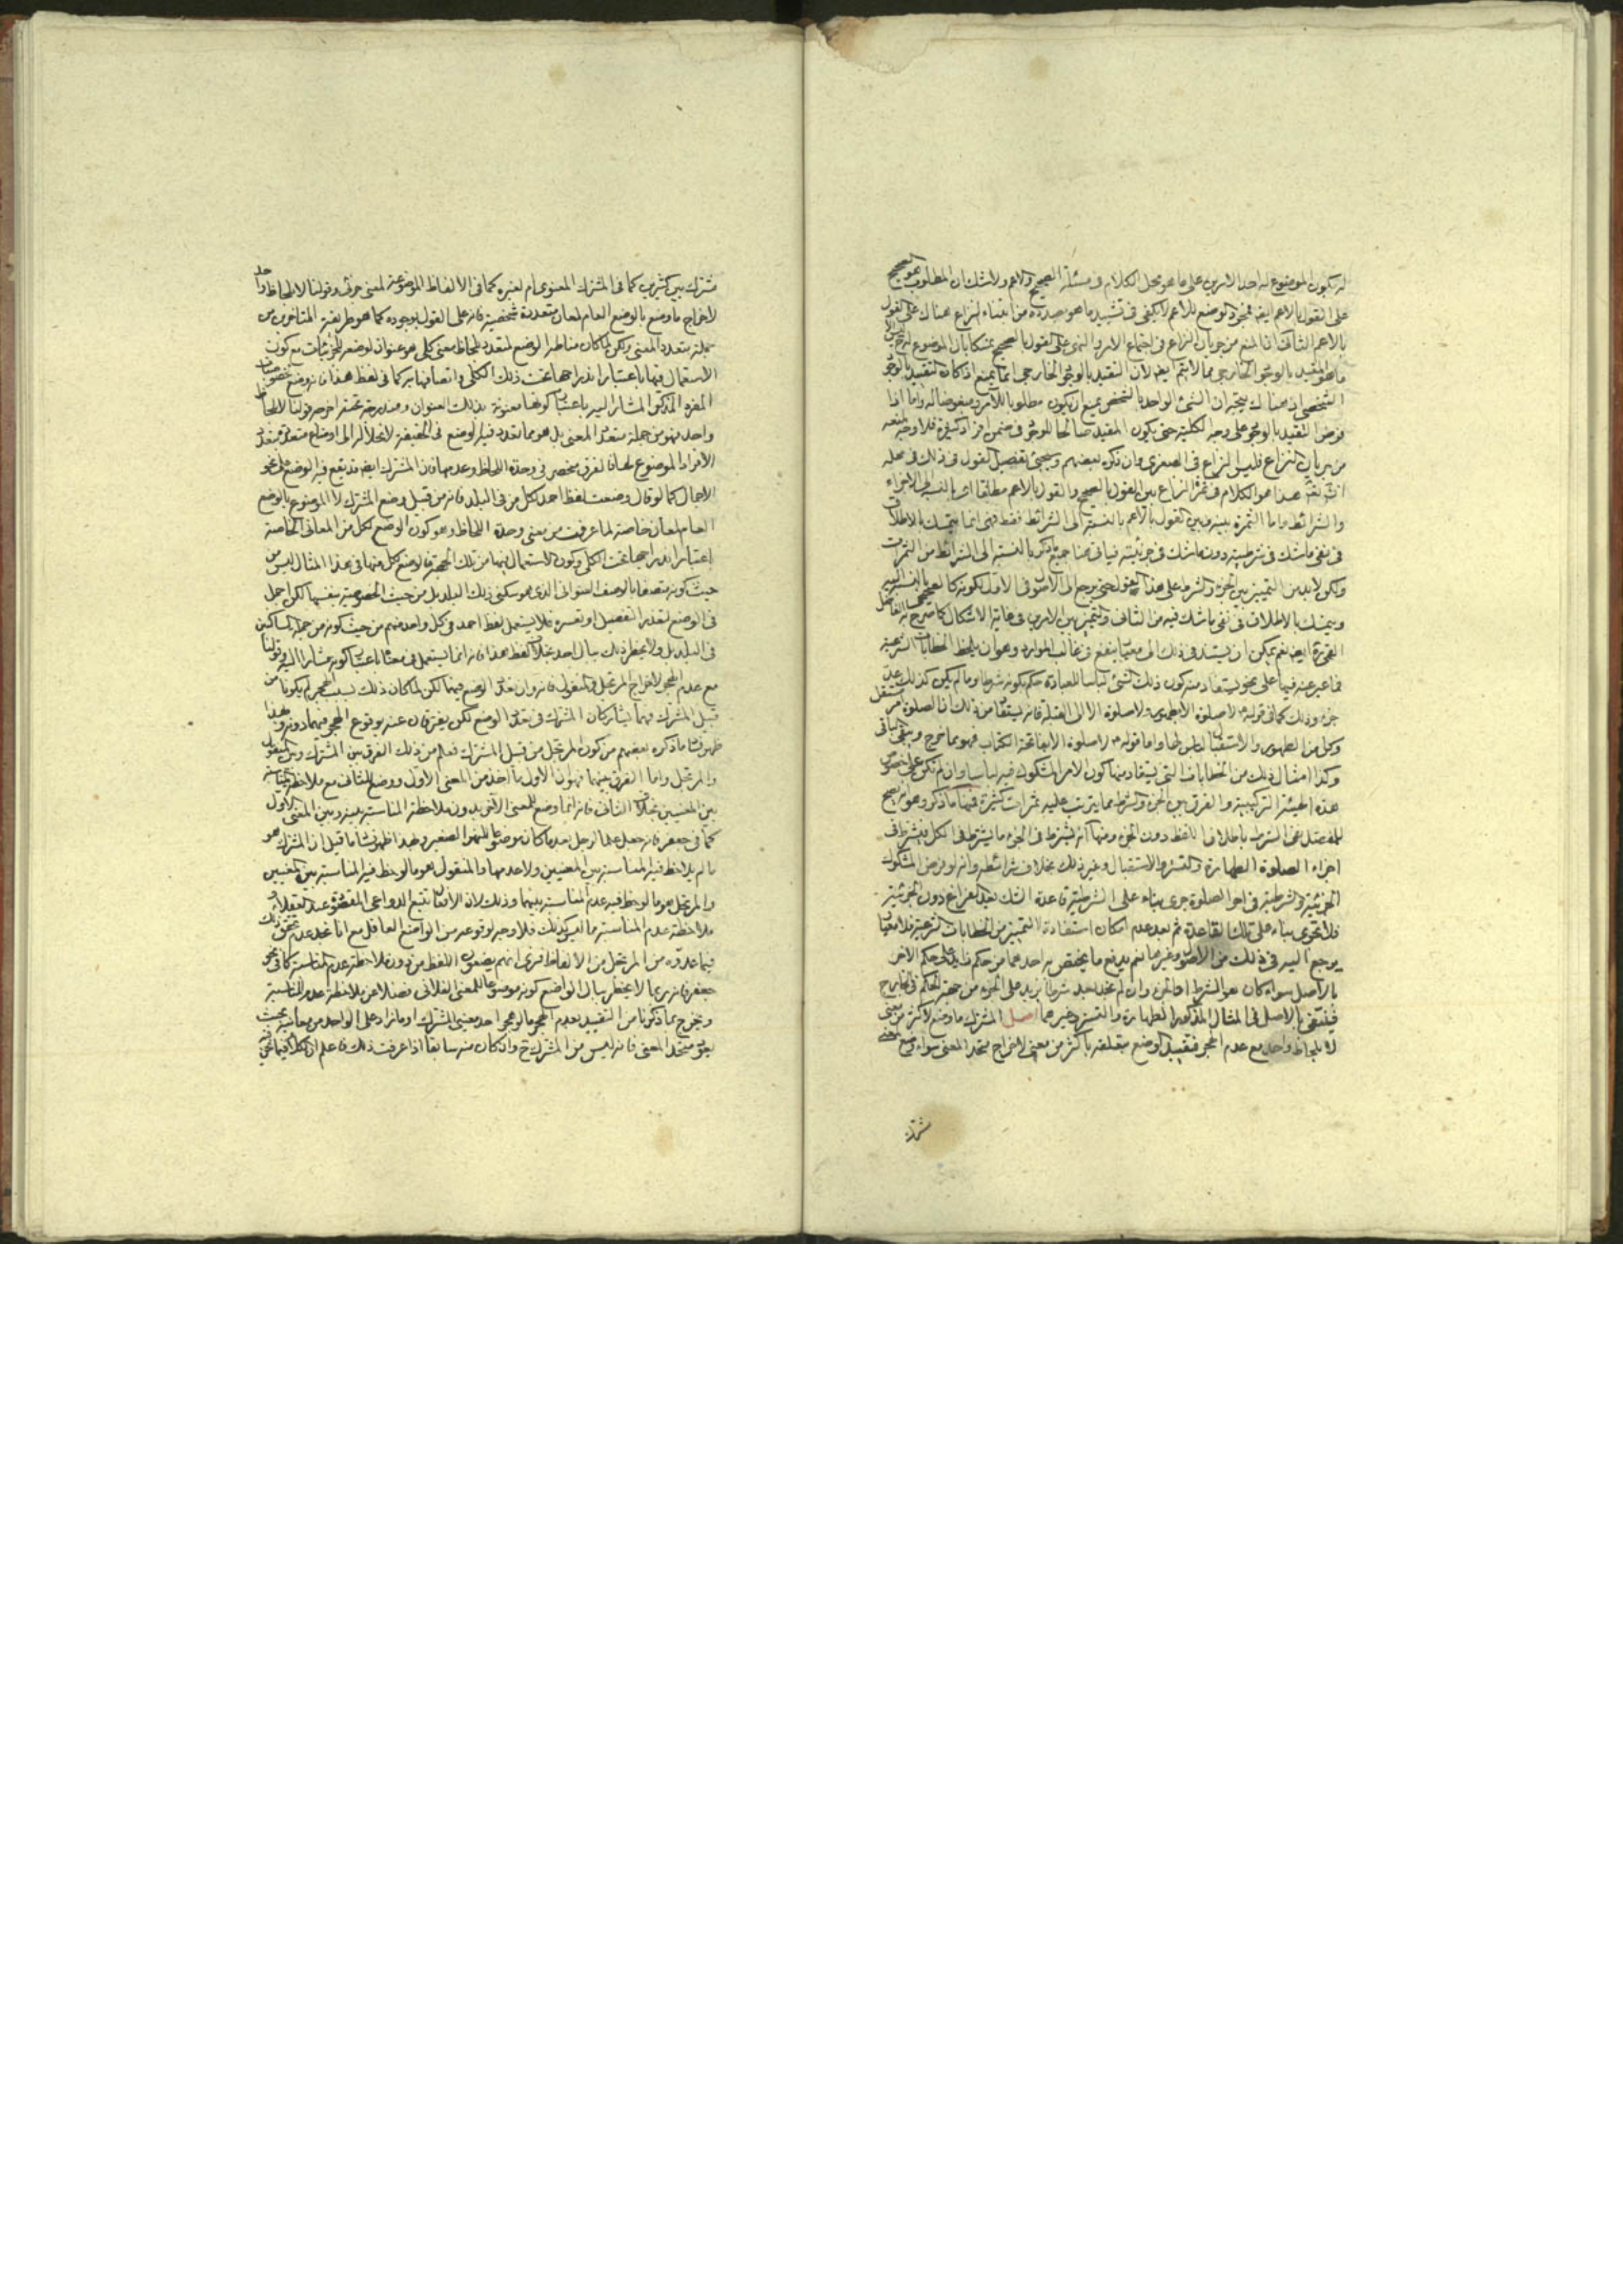 له بكون الموضوع له احد الامرين على ما هو محل الكلام في مسئلة الصحيح والاعم ولا شك ان المطلوب هو الصحيح
على القول بالاعم ايضا فمجرد الوضع للاعم لا يكفي في تشييد ما هو بصدده من ابتناء النزاع هناك على القول
بالاعم الثالث ان المنع من جريان النزاع في اجتماع الامر والنهي على القول بالصحيح تمسكا بان الموضوع له
ما هو المقيد بالوجود الخارجي مما لا يتم ايضا لان التقييد بالوجود الخارجي انما يمنع اذ كان التقييد بالوجود
الشخصي اذ هناك يتجه ان الشئ الواحد بالشخص يمتنع ان يكون مطلوبا للآمر ومبغوضا له واما اذا
فرض التقييد بالوجود على وجه الكلية حتى يكون المقيد صالحا للوجود في ضمن افراد كثيرة فلا وجه لمنعه
من جريان النزاع فليس النزاع في الصغرى وان ذكره بعضهم وسيجئ تفصيل القول في ذلك في محله
انشاء الله تعالى هذا هو الكلام في ثمرة النزاع بين القول بالصحيح والقول بالاعم مطلقا اي بالنسبة الى الاجزاء
والشرائط واما الثمرة بينه وبين القول بالاعم بالنسبة الى الشرائط فقط فهي انما يتمسك بالاطلاق
في نفي ما شك في شرطيته دون ما شك في جزئيته فياتي هنا جميع ما ذكر بالنسبة الى الشرائط من الثمرات
ولكن لا بد من التمييز بين الجزء والشرط على هذا القول حتى يرجع الى الاصول في الاول لكونه كالصحيحي بالنسبة اليه
ويتمسك بالاطلاق في نفي ما شك فيه من الثاني والتميز بين الامرين في غاية الاشكال كما صرح به الفاضل
القمي ره ايضا نعم يمكن ان يستند في ذلك الى معيار ينفع في غالب الموارد وهو ان يلحظ الخطابات الشرعية
فما عبر عنه فيها على نحو يستفاد منه كون ذلك الشئ لباسا للعبادة حكم بكونه شرطا وما لم يكن كذلك عد
جزء وذلك كما في قوله لا صلوة الا بطهور ولا صلوة الا الى القبلة فانه يستفاد من ذلك ان الصلوة امر مستقل
وكل من الطهور والاستقبال لباس لها واما قوله لا صلوة الا بفاتحة الكتاب فهو مما خرج ويبقى الباقي
وكذا امثال ذلك من الخطابات التي يستفاد منها كون الامر المشكوك فيه لباسا وان لم تكن على خصوص
هذه الهيئة التركيبية والفرق بين الجزء والشرط مما يترتب عليه ثمرات كثيرة فمنها ما ذكر وهو انه يصح
للمفصل نفي الشرط باطلاق اللفظ دون الجزء ومنها انه يشترط في الجزء ما يشترط في الكل فيشترط في
اجزاء الصلوة الطهارة والتستر والاستقبال وغير ذلك بخلاف شرائطه وانه لو فرض المشكوك
الجزئية والشرطية في اجزاء الصلوة جرى بناء على الشرطية قاعدة الشك بعد الفراغ دون الجزئية
فلا تجري بناء على تلك القاعدة ثم بعد عدم امكان استفادة التمييز من الخطابات الشرعية فلا معيار
يرجع اليه في ذلك من الاصول وغيرها نعم يدفع ما يختص به احدهما من حكم زائد على حكم الآخر
بالاصل سواء كان هو الشرط او الجزء وان لم نجد بعد شرطا يزيد على الجزء من جهة الحكم في الخارج
فينتفي بالاصل في المثال المذكور الطهارة والتستر وغيرهما اصل المشترك ما وضع لاكثر من معنى
لا بلحاظ واحد مع عدم الهجر فتقييد الوضع بتعلقه باكثر من معنى لاخراج متحد المعنى سواء وضع لمعنى
مشترك
مشترك بين كثيرين كما في المشترك المعنوي ام لغيره كما في الالفاظ الموضوعة لمعنى جزئي وقولنا لا بلحاظ واحد
لاخراج ما وضع بالوضع العام لمعان متعددة شخصية فانه على القول بوجوده كما هو طريقة المتاخرين من
جملة متعدد المعنى ولكن لما كان مناط الوضع لمتعدد لحاظ معنى كلي هو عنوان لوضعه للجزئيات مع كون
الاستعمال فيها باعتبار اندراجها تحت ذلك الكلي واتصافها به كما في لفظ هذا فانه وضع لخصوصيات
المفرد المذكر المشار اليه باعتبار كونها معنونة بذلك العنوان ومندرجة تحته اخرجه قولنا لا بلحاظ
واحد فهو من جملة متعدد المعنى بل هو مما تعدد فيه الوضع في الحقيقة لانحلاله الى اوضاع متعددة بتعدد
الافراد الموضوع لها فالفرق منحصر في وحدة اللحاظ وعدمها فان المشترك ايضا قد يقع فيه الوضع على نحو
الاجمال كما لو قال وضعت لفظ احمد لكل من في البلد فانه من قبيل وضع المشترك لا الموضوع بالوضع
العام لمعان خاصة لما عرفت من معنى وحدة اللحاظ وهو كون الوضع لكل من المعاني الخاصة
اعتبار اندراجها تحت الكلي وكون الاستعمال فيها من تلك الجهة والوضع لكل منها في هذا المثال ليس من
حيث كونه متصفا بالوصف العنواني الذي هو سكنى ذلك البلد بل من حيث الخصوصية بنفسها لكن اجمل
في الوضع لتعذر التفصيل او تعسره فلا يستعمل لفظ احمد في كل واحد منهم من حيث كونه من جملة الساكنين
في البلد بل ولا يخطر ذلك ببال احد بخلاف لفظ هذا فانه انما يستعمل في معناه باعتبار كونه مشارا اليه وقولنا
مع عدم الهجر لاخراج المرتجل والمنقول فانه وان تعدد الوضع فيهما لكن لما كان ذلك بسبب الهجر لم يكونا من
قبيل المشترك فهما يشاركان المشترك في تعدد الوضع لكن يفترقان عنه بوقوع الهجر فيهما دونه وبهذا
ظهر فساد ما ذكره بعضهم من كون المرتجل من قبيل المشترك فعلم من ذلك الفرق بين المشترك وبين المنقول
والمرتجل واما الفرق بينهما فهو ان الاول ما اخذ من المعنى الاول ووضع للثاني مع ملاحظة المناسبة
بين المعنيين بخلاف الثاني فانه انما وضع للمعنى الآخر بدون ملاحظة المناسبة بينه وبين المعنى الاول
كما في جعفر فانه جعل علما لرجل بعد ما كان موضوعا للنهر الصغير وبهذا ظهر فساد ما قيل ان المشترك هو
ما لم يلاحظ فيه المناسبة بين المعنيين ولا عدمها والمنقول هو ما لوحظ فيه المناسبة بين المعنيين
والمرتجل هو ما لوحظ فيه عدم المناسبة بينهما وذلك لان الافعال تتبع الدواعي المقصودة عند العقلاء
ملاحظة عدم المناسبة ما ليس كذلك فلا وجه لوقوعه من الواضع العاقل مع انا نجد عدم تحقق ذلك
فيما عدوه من المرتجل من الالفاظ فنرى انهم يضعون اللفظ من دون ملاحظة عدم المناسبة كما في نحو
جعفر فانه ربما لا يخطر ببال الواضع كونه موضوعا للمعنى الفلاني فضلا عن ملاحظة عدم المناسبة
وبخرج بما ذكرنا من التقييد بعدم الهجر ما لو هجر احد معنيي المشترك او ما زاد على الواحد من معانيه بحيث
بقي متحد المعنى فانه ليس من المشترك ح وان كان منه سابقا اذا عرفت ذلك فاعلم ان الكلام